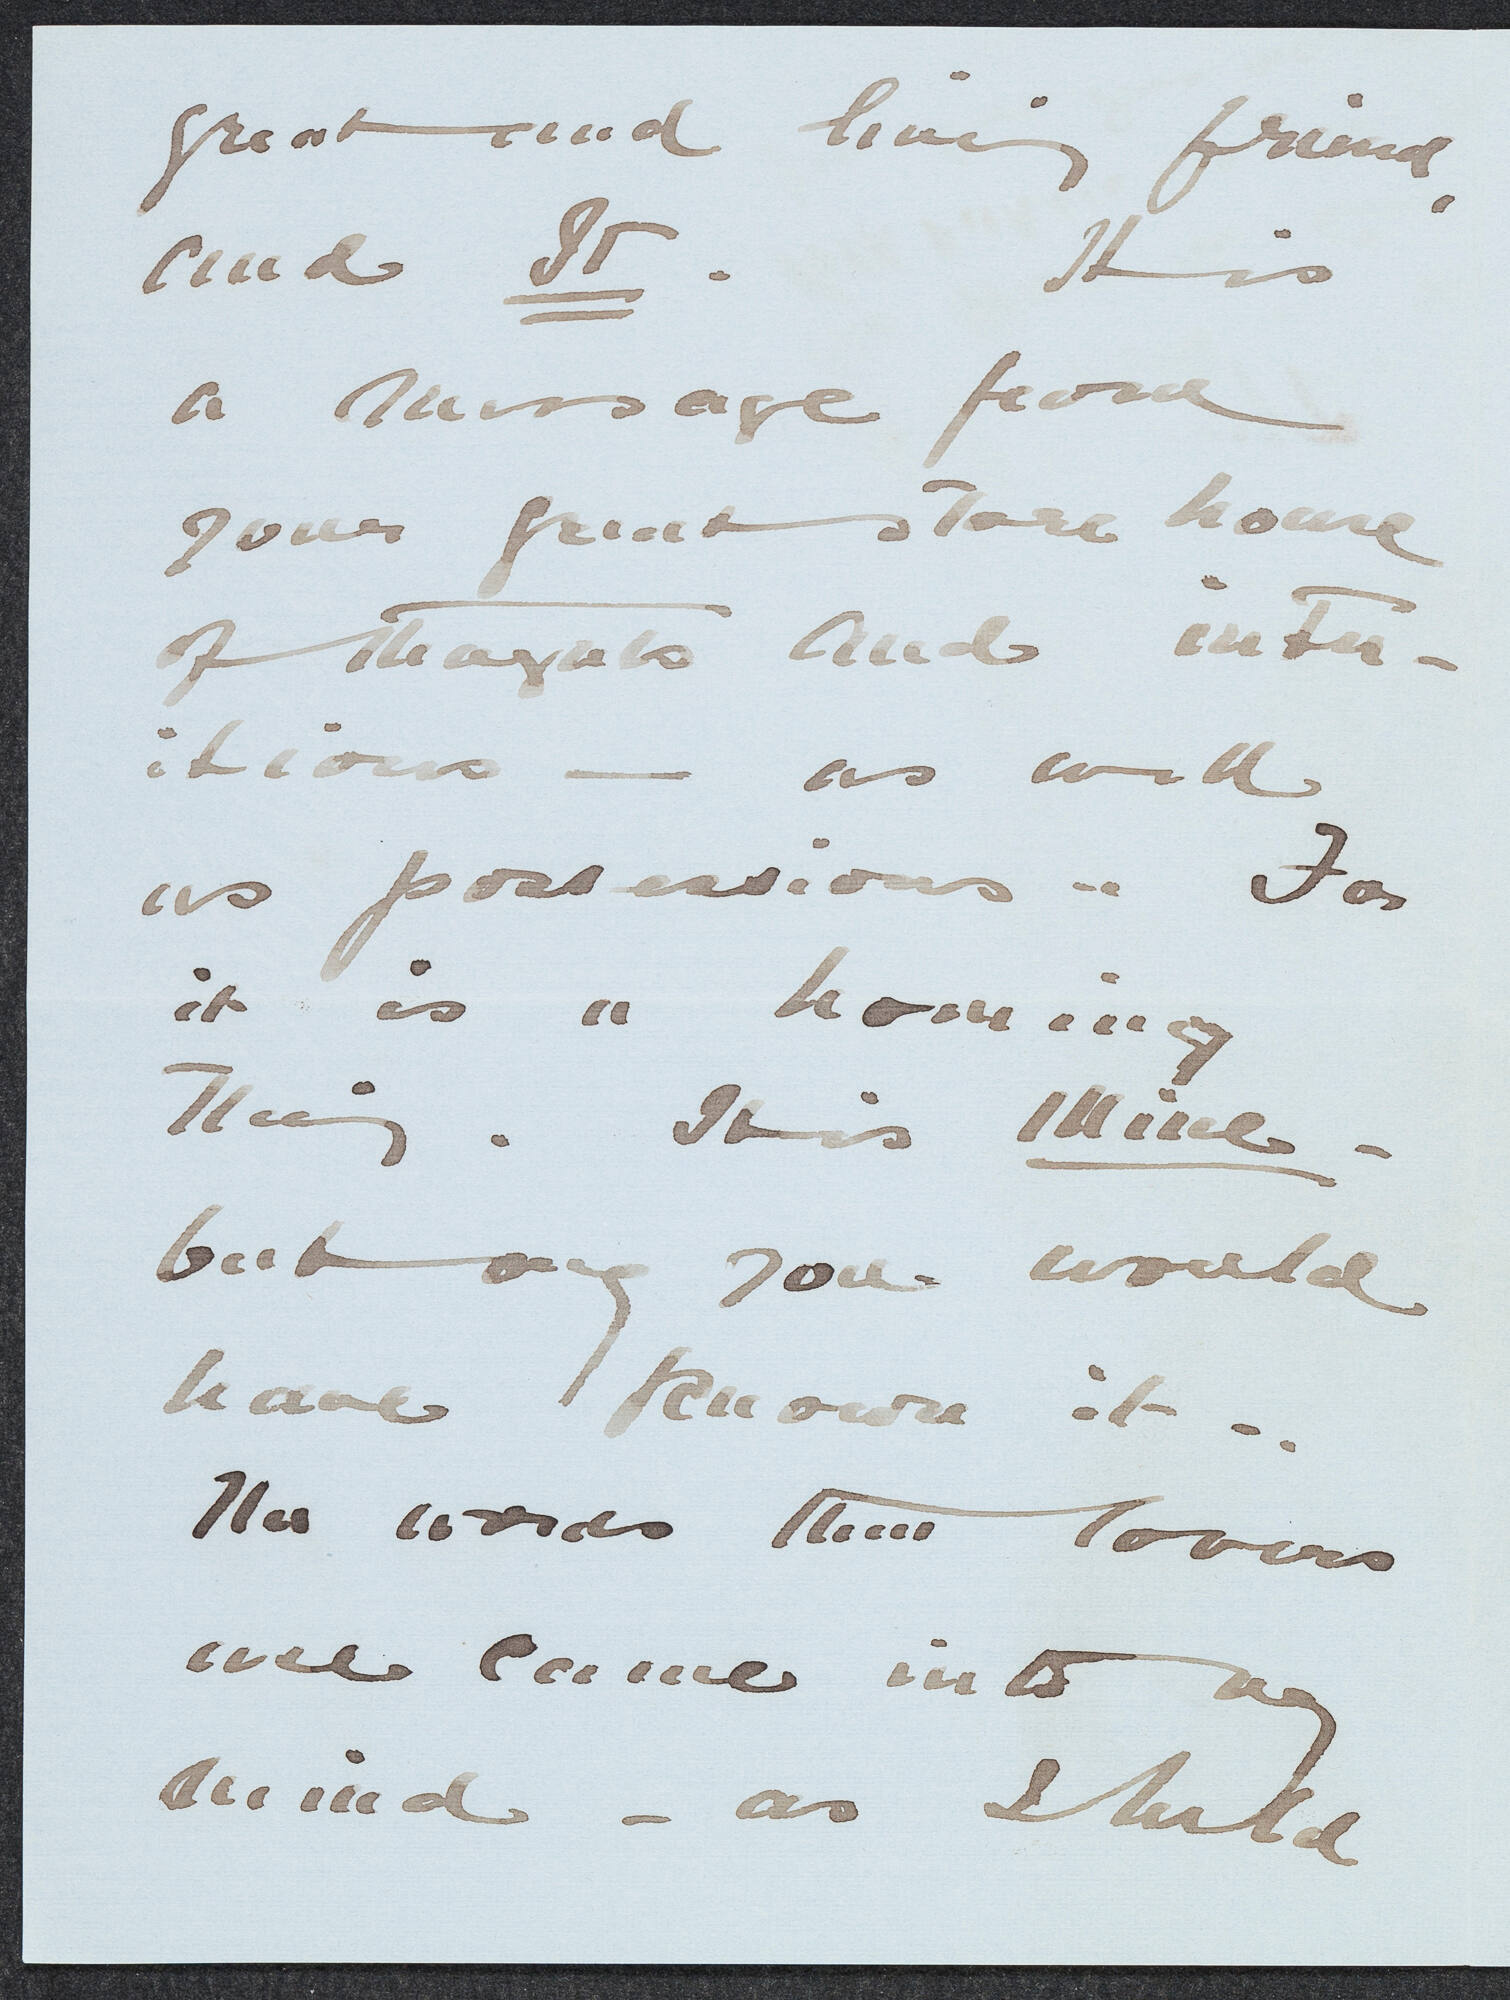 great and living friend,
and It. It is
a message from
your great store house
of thoughts and intu-
itions — as well
as possessions .. For
it is a homing
thing. It is Mine -
but only you would
have known it ..
The words then lovers
we came into my
mind - as I held